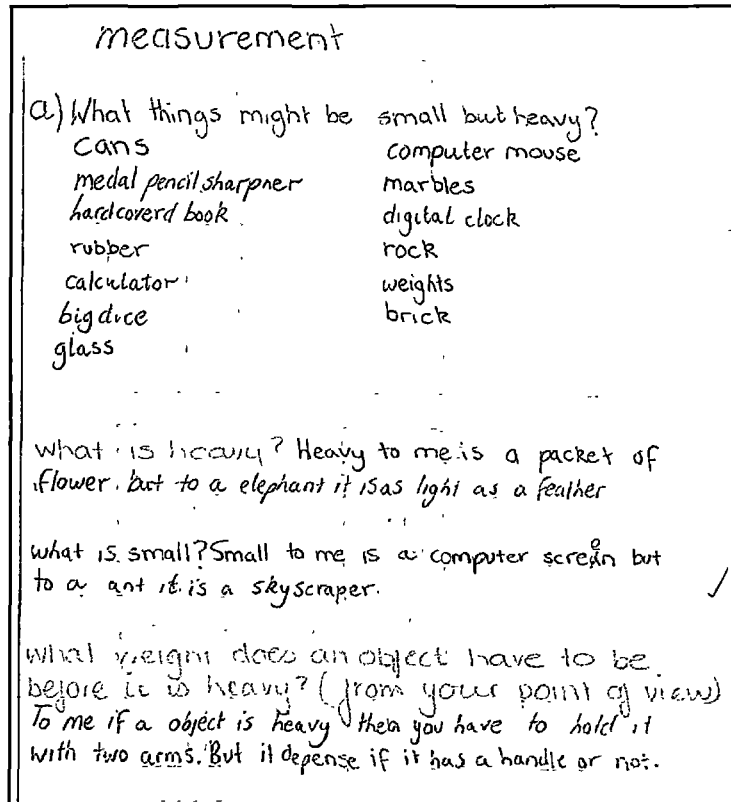 measurement
a) What things might be small but heavy?
cans computer mouse
medal pencil sharpner marbles
hardcoverd book digital clock
rubber rock
calculator weights
big dice brick
glass
what is heavy? Heavy to me is a packet of
flower. but to a elephant it is as light as a feather
what is small? Small to me is a computer screen but
to a ant it is a skyscraper.
what weight does an object have to be
before it is heavy? (from your point of view)
To me if a object is heavy then you have to hold it
with two arms. But it depense if it has a handle or not.